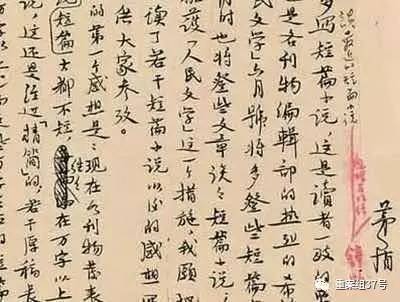 茅盾
谈最近的短篇小说
多写短篇小说，这是读者一致的
是各刊物编辑部的热烈的希
民文学》六月号将多登些短篇
时也将登些文章谈谈短篇小说，
护《人民文学》这一个措施，我愿
读了若干短篇小说以后的感想写
供大家参考。
的第一个感想是：现在刊物发表
短篇大都不短，往往在万字以上
说，这还是经过“精简”的，若干原稿
重案组37号